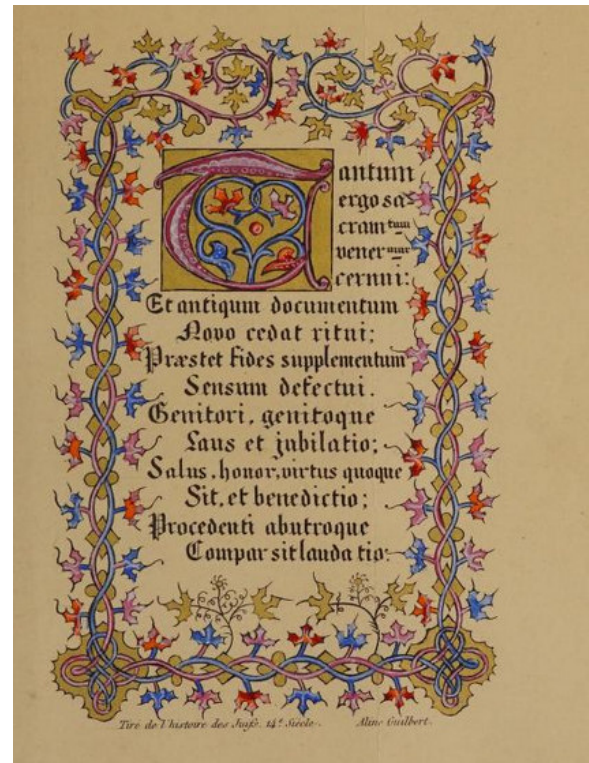 Tantum
ergo sa
cramtum
venermur
cernui:
Et antiqum documentum
Novo cedat ritui;
Præstet fides supplementum
Sensum defectui.
Genitori, genitoque
Laus et jubilatio;
Salus, honor, virtus quoque
Sit, et benedictio;
Procedenti abutroque
Compar sit lauda tio:
Tiré de l'histoire des Juifs. 14e Siècle. Aline Guilbert.